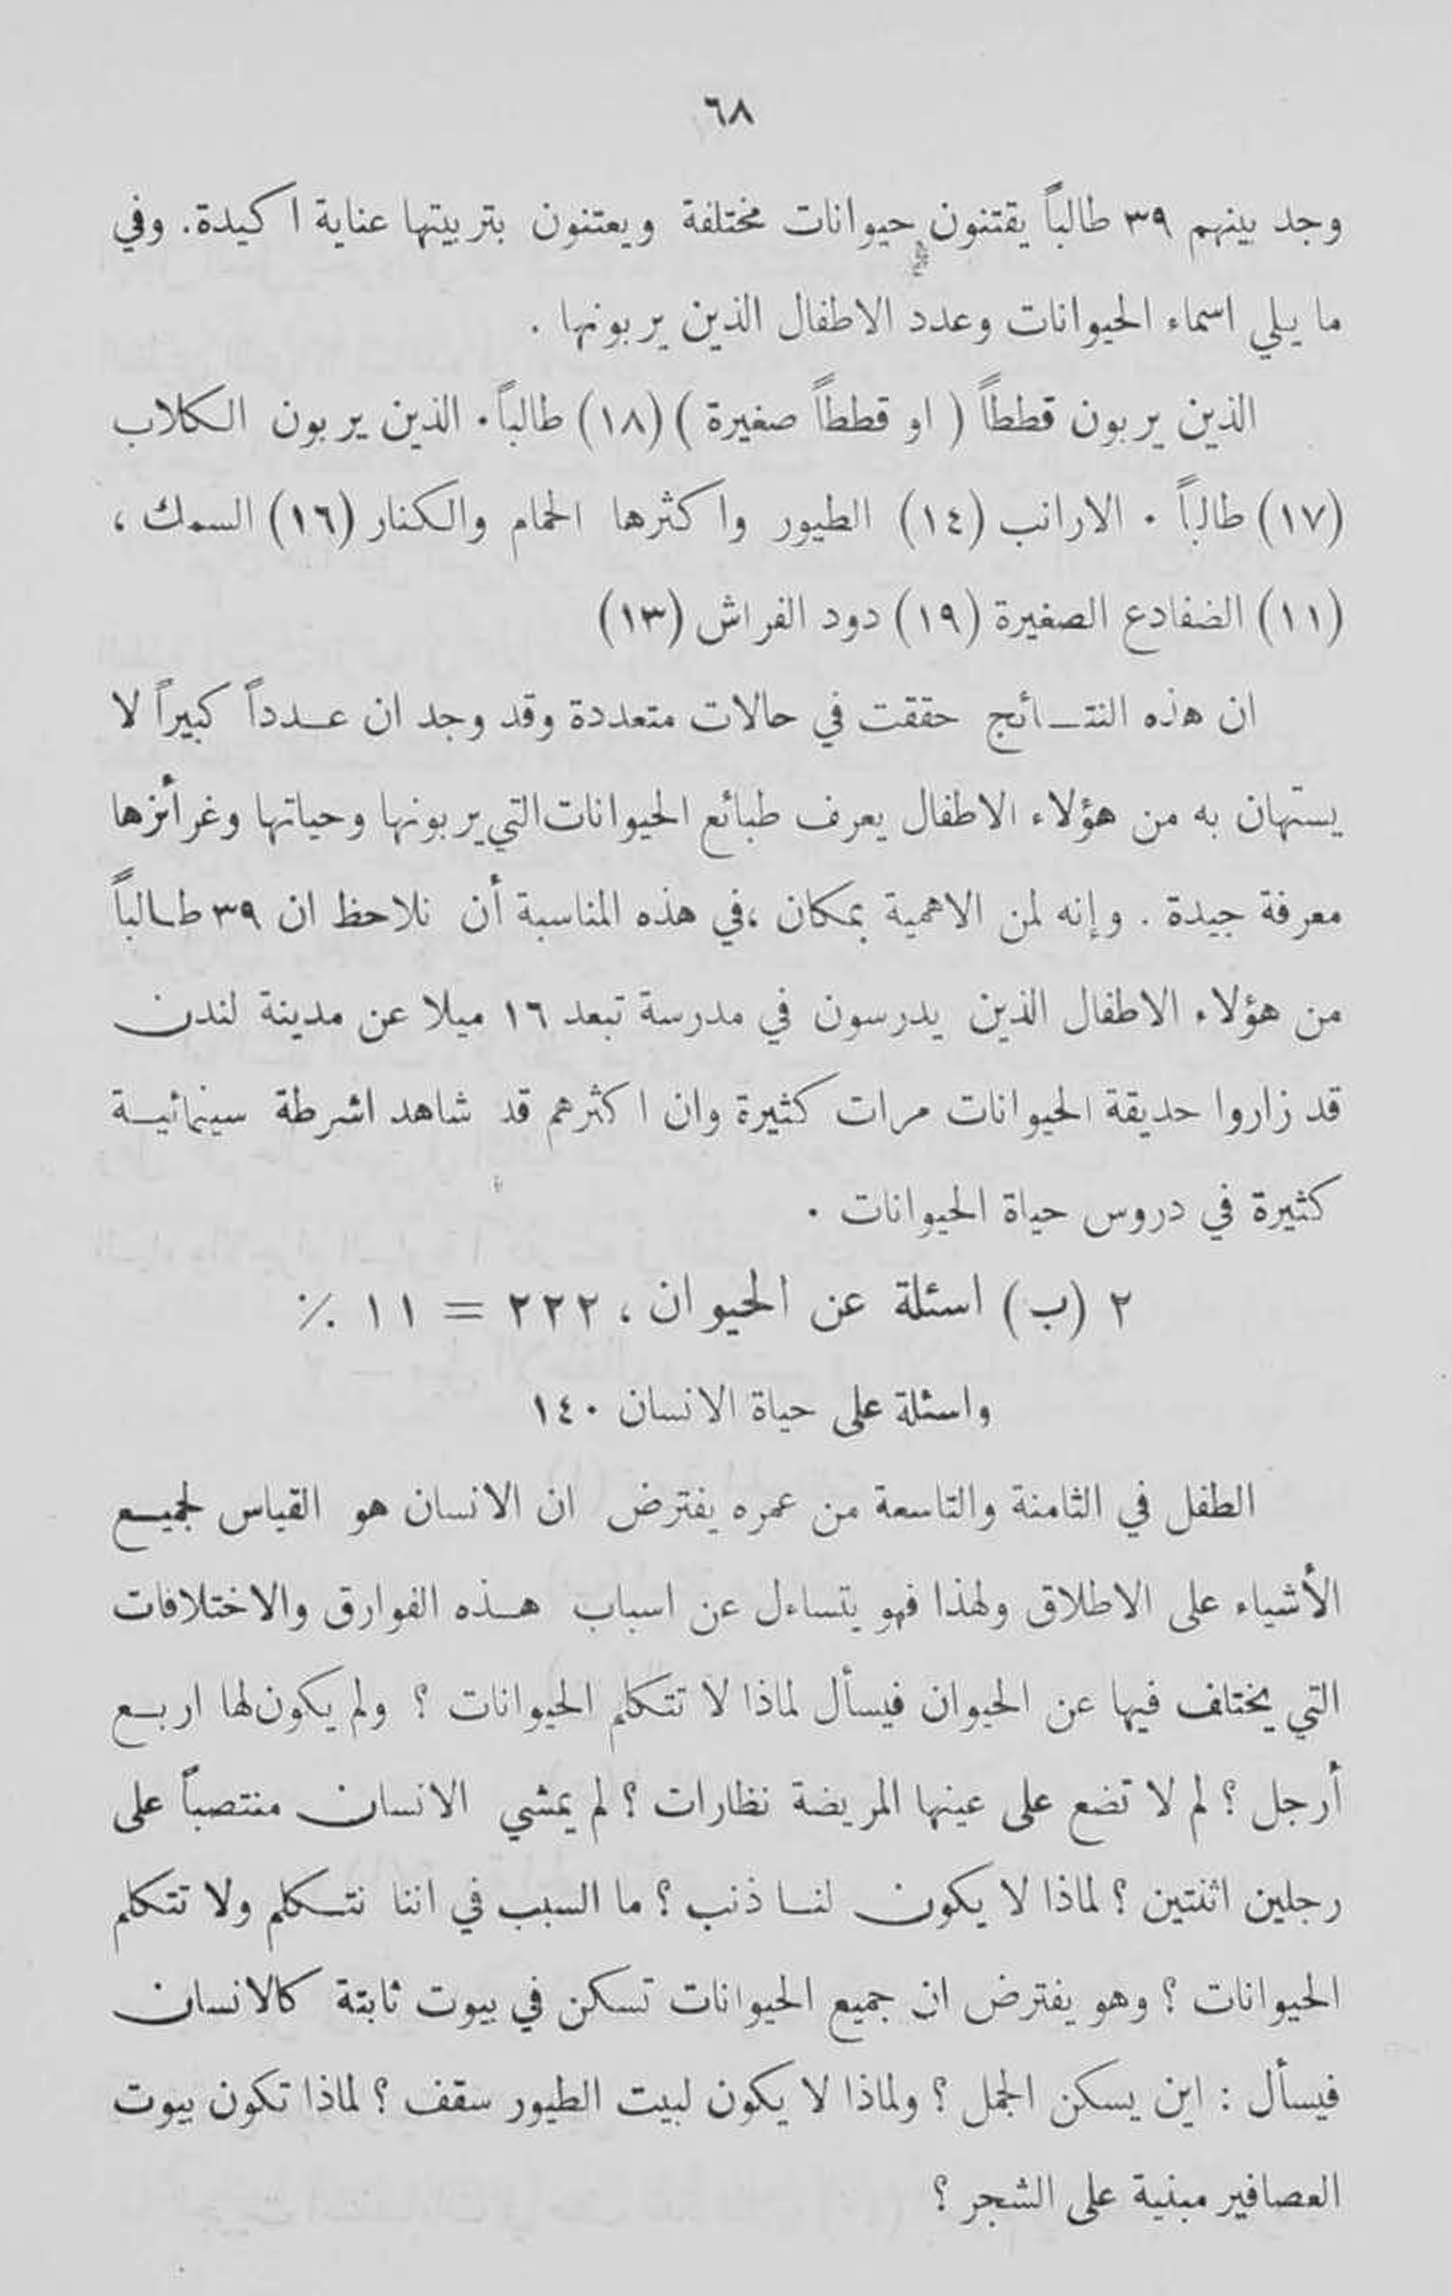 ٦٨
وجد بينهم ٣٩ طالباً يقتنون حيوانات مختلفة ويعتنون بتربيتها عناية اكيدة. وفي
ما يلي اسماء الحيوانات وعدد الاطفال الذين يربونها .
الذين يربون قططاً ( او قططاً صغيرة ) (١٨) طالباً. الذين يربون الكلاب
(١٧) طالباً . الارانب (١٤) الطيور واكثرها الحمام والكنار (١٦) السمك ،
(١١) الضفادع الصغيرة (١٩) دود الفراش (١٣)
ان هذه النتـائج حققت في حالات متعددة وقد وجد ان عـدداً كبيراً لا
يستهان به من هؤلاء الاطفال يعرف طبائع الحيوانات التي يربونها وحياتها وغرأئزها
معرفة جيدة . وإنه لمن الاهمية بمكان ،في هذه المناسبة أن نلاحظ ان ٣٩ طـالباً
من هؤلاء الاطفال الذين يدرسون في مدرسة تبعد ١٦ ميلا عن مدينة لندن
قد زاروا حديقة الحيوانات مرات كثيرة وان اكثرهم قد شاهد اشرطة سينمائيـة
كثيرة في دروس حياة الحيوانات .
٢ (ب) اسئلة عن الحيوان ، ٢٢٢ = ١١ ٪
واسئلة على حياة الانسان ١٤٠
الطفل في الثامنة والتاسعة من عمره يفترض ان الانسان هو القياس لجميـع
الأشياء على الاطلاق ولهذا فهو يتساءل عن اسباب هـذه الفوارق والاختلافات
التي يختلف فيها عن الحيوان فيسأل لماذا لا تتكلم الحيوانات ؟ ولم يكون لها اربـع
أرجل ؟ لم لا تضع على عينها المريضة نظارات ؟ لم يمشي الانسان منتصباً على
رجلين اثنتين ؟ لماذا لا يكون لنـا ذنب ؟ ما السبب في اننا نتـكلم ولا تتكلم
الحيوانات ؟ وهو يفترض ان جميع الحيوانات تسكن في بيوت ثابتة كالانسان
فيسأل : اين يسكن الجمل ؟ ولماذا لا يكون لبيت الطيور سقف ؟ لماذا تكون بيوت
العصافير مبنية على الشجر ؟